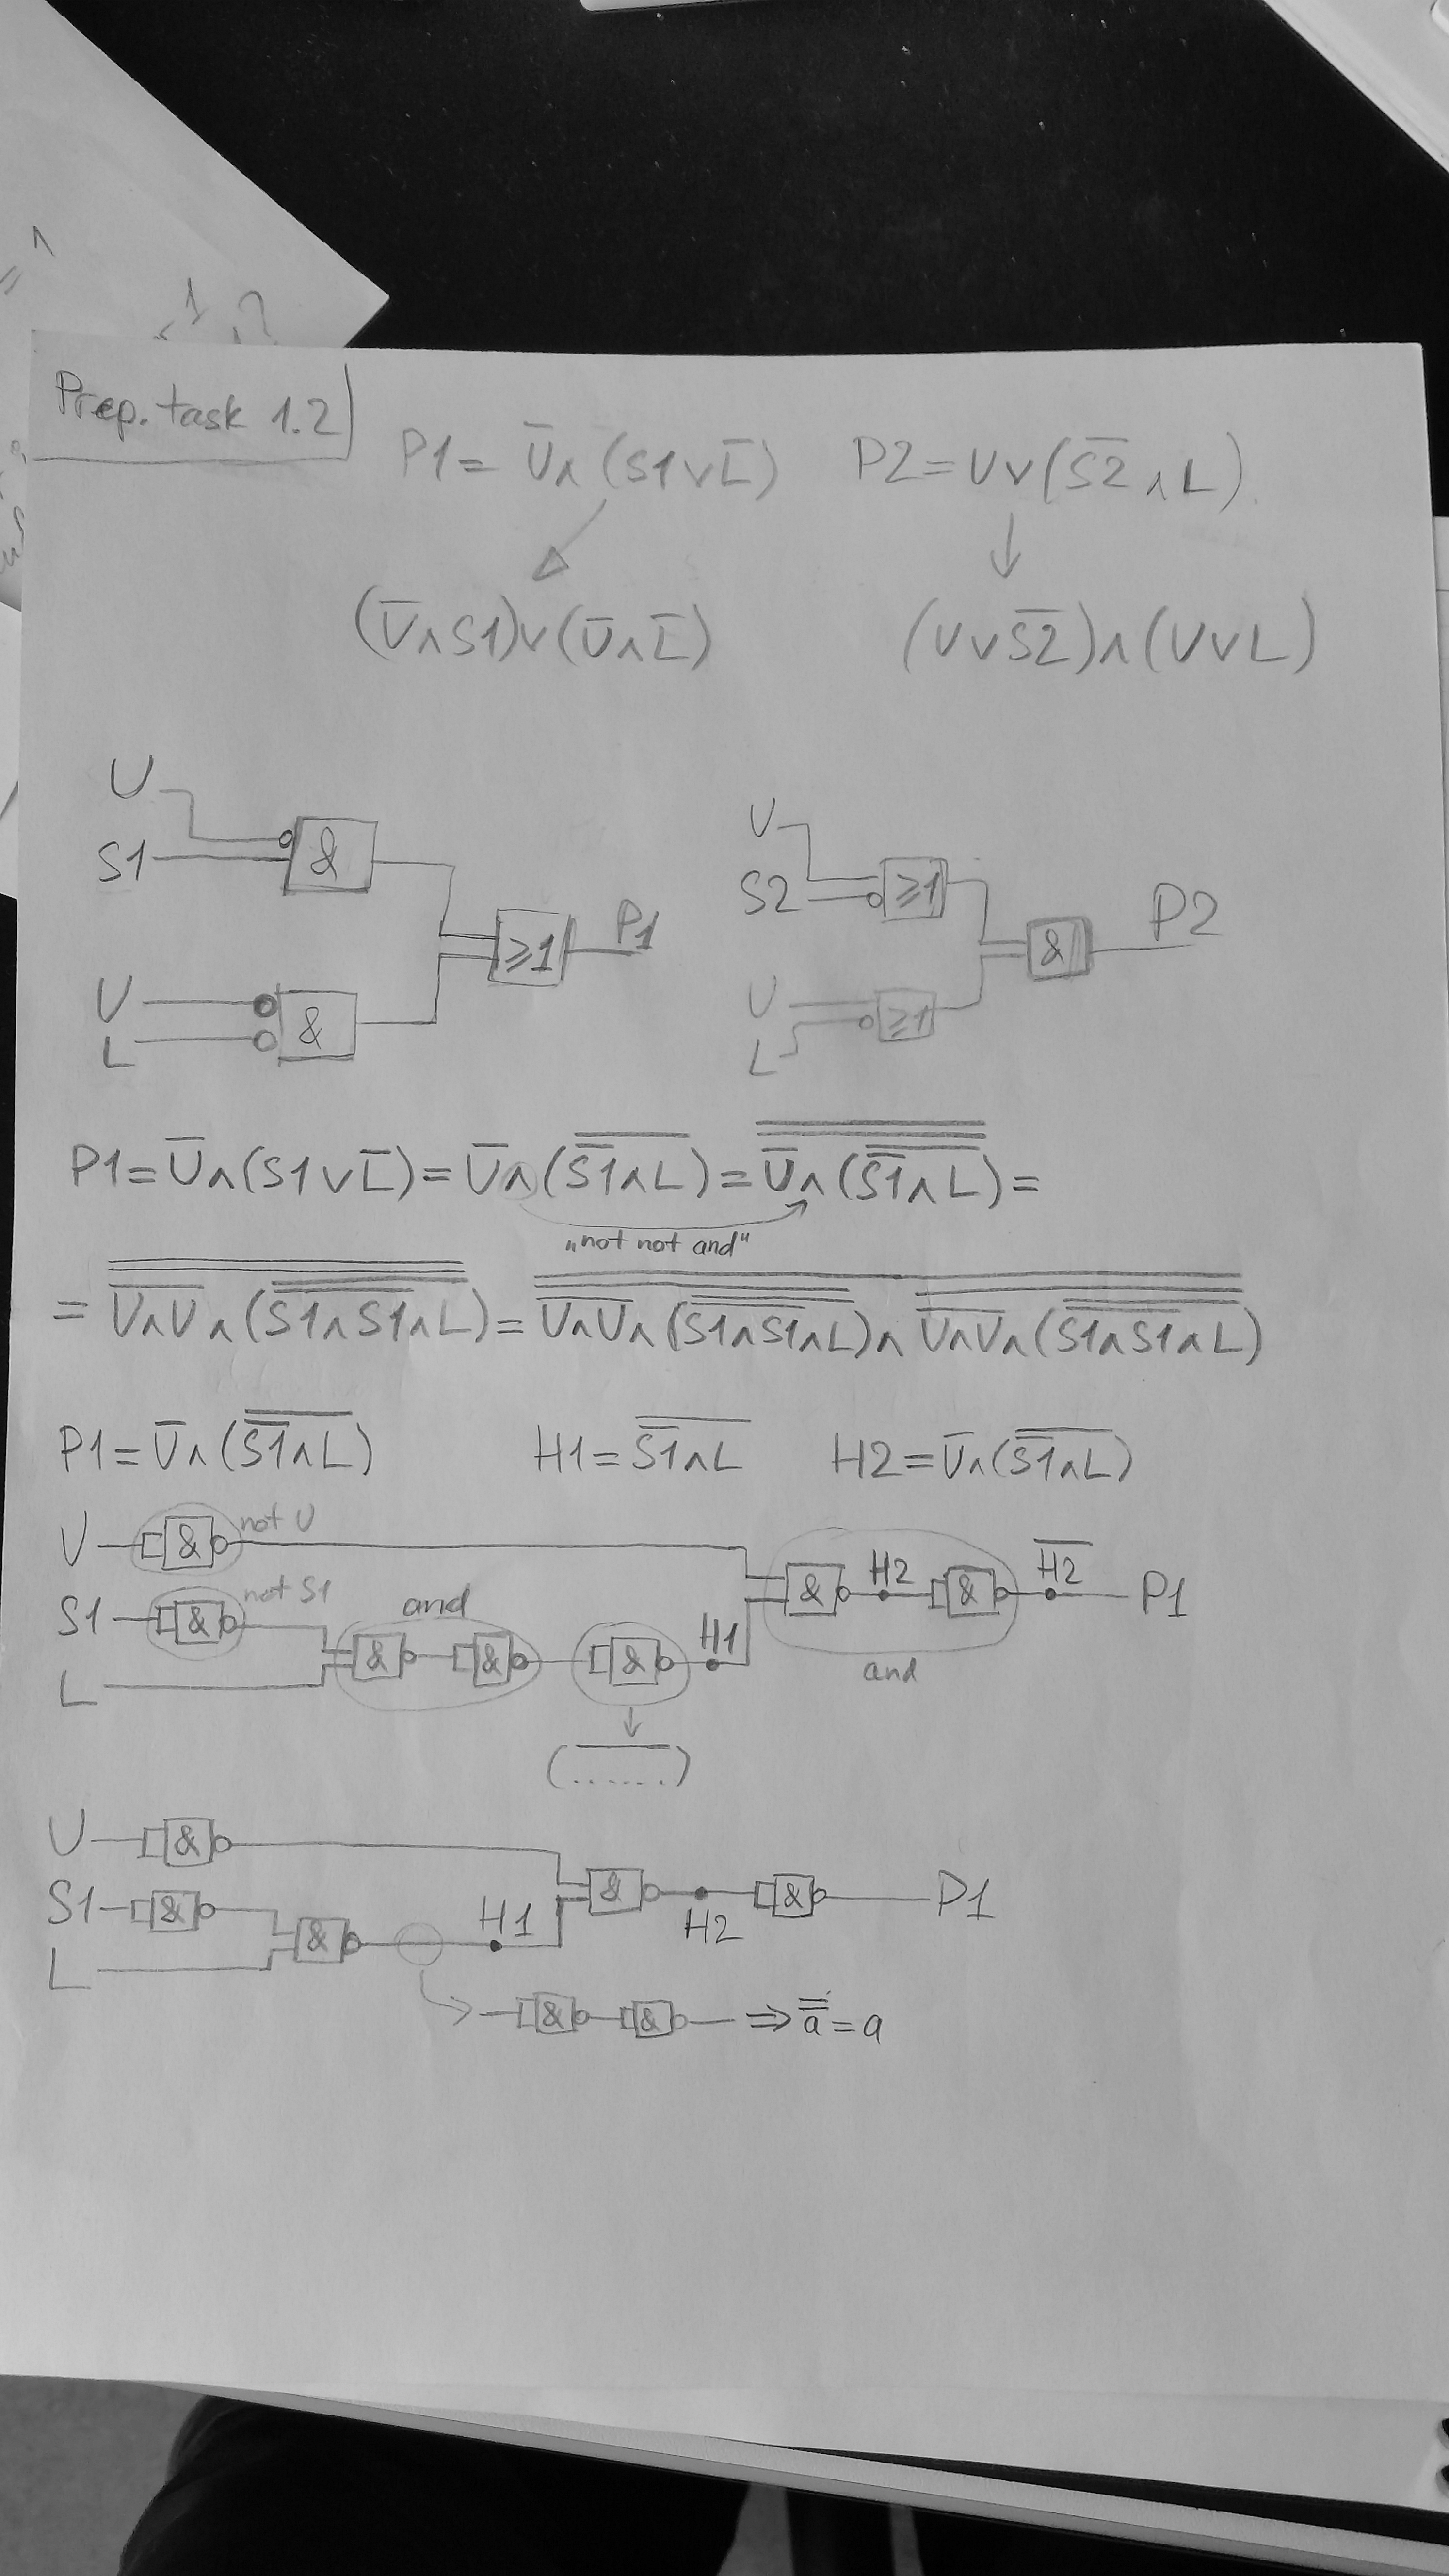 = 1
1 ?
Prep. task 1.2
P1 = U̅ ∧ (S1 ∨ L̅) P2 = U ∨ (S̅2̅ ∧ L)
(U̅ ∧ S1) ∨ (U̅ ∧ L̅) (U ∨ S̅2̅) ∧ (U ∨ L)
U
S1
&
U
L
&
≥1
P1
U
S2
≥1
U
L
≥1
&
P2
P1 = U̅ ∧ (S1 ∨ L̅) = U̅ ∧ (\overline{\overline{S1} ∧ L}) = \overline{\overline{U̅ ∧ (\overline{\overline{S1} ∧ L})}} =
"not not and"
= \overline{\overline{\overline{U∧U} ∧ (\overline{\overline{S1∧S1}∧L})}} = \overline{\overline{\overline{U∧U} ∧ (\overline{\overline{S1∧S1}∧L}) ∧ \overline{U∧U} ∧ (\overline{\overline{S1∧S1}∧L})}}
P1 = U̅ ∧ (\overline{\overline{S1} ∧ L}) H1 = \overline{\overline{S1} ∧ L} H2 = U̅ ∧ (\overline{\overline{S1} ∧ L})
U & not U
S1 & not S1 and
L & & & H1
& H2 & \overline{H2} P1
and
(\overline{......})
U &
S1 &
L & H1
& H2 & P1
& & ⇒ \overline{\overline{a}} = a